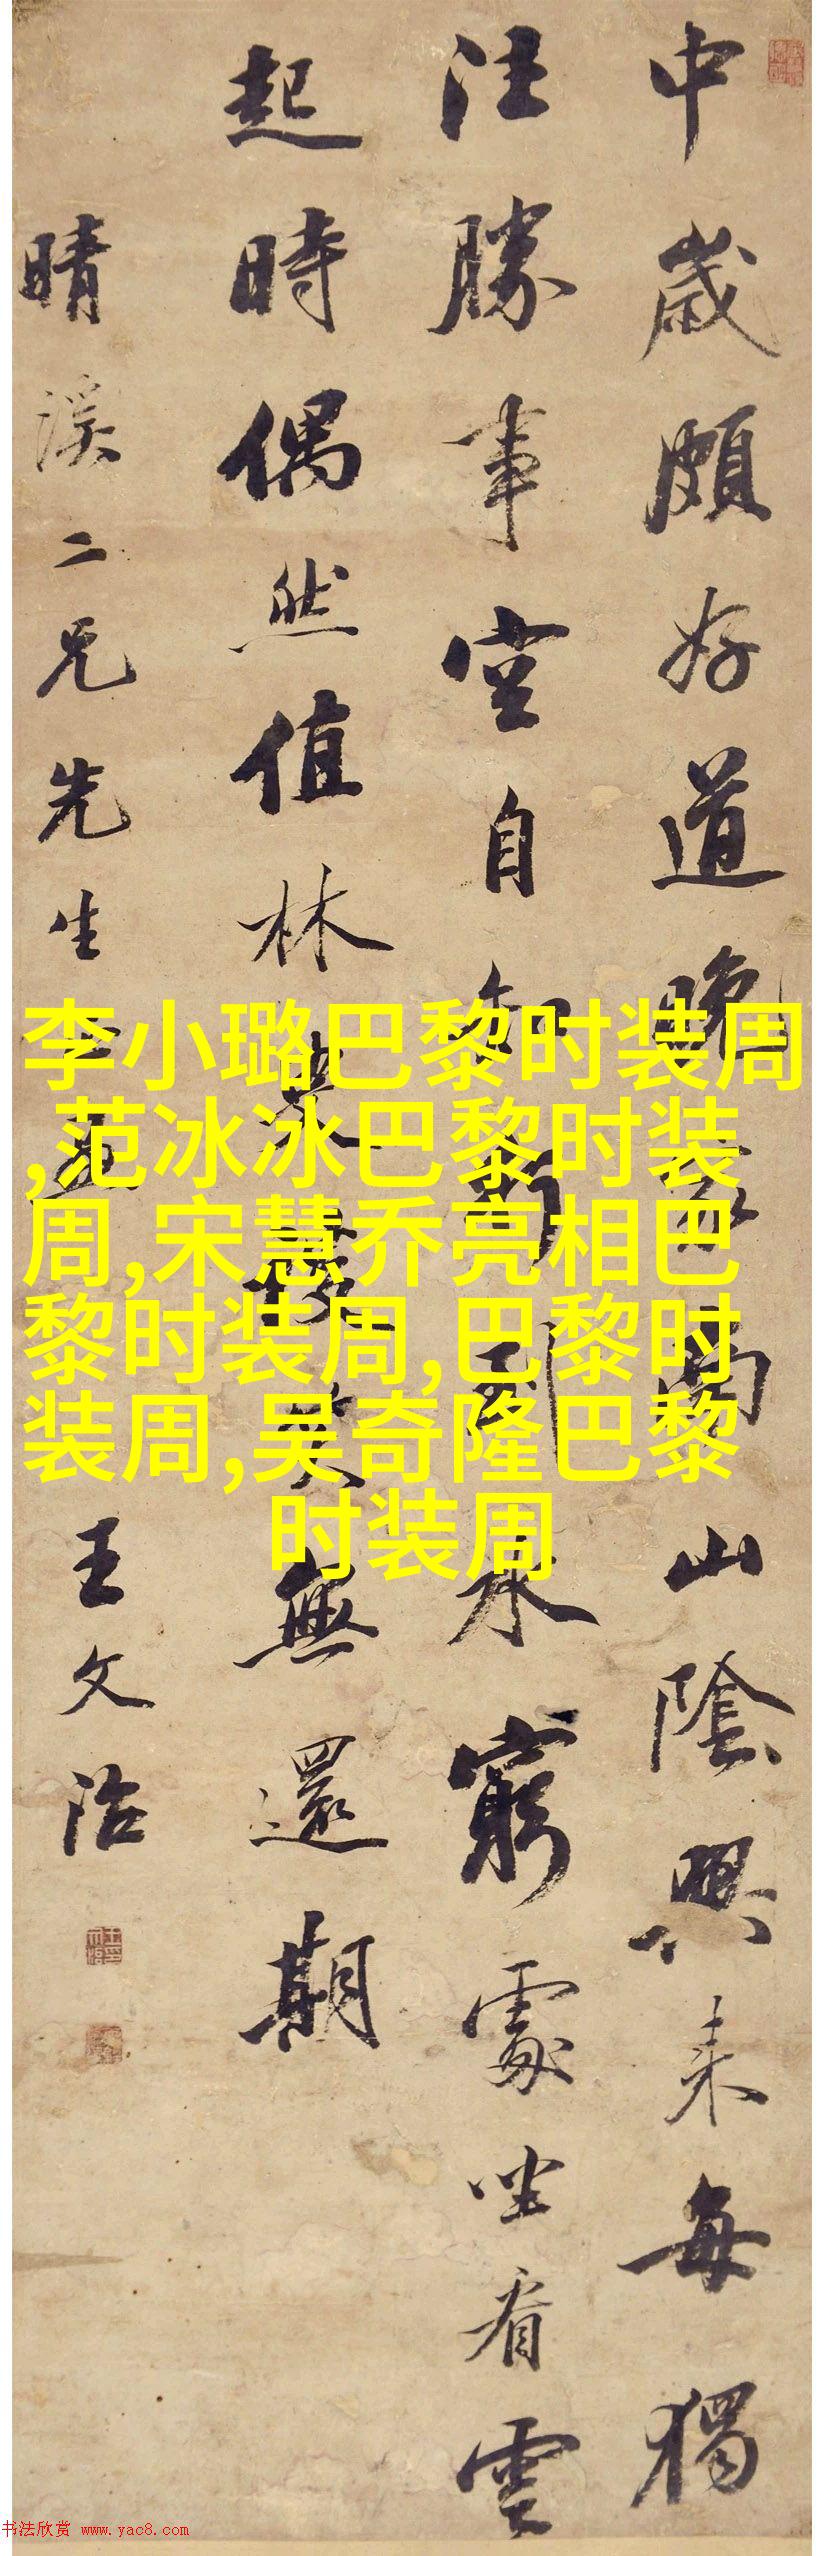 中歲頗好道晚家南山陰興來每獨
往勝事空自知行到水窮處坐看雲
起時偶然值林笑無還期
晴溪二兄先生
王文治
李小璐巴黎时装周
,范冰冰巴黎时装
周,宋慧乔亮相巴
黎时装周,巴黎时
装周,吴奇隆巴黎
时装周
书法欣赏 www.yac8.com